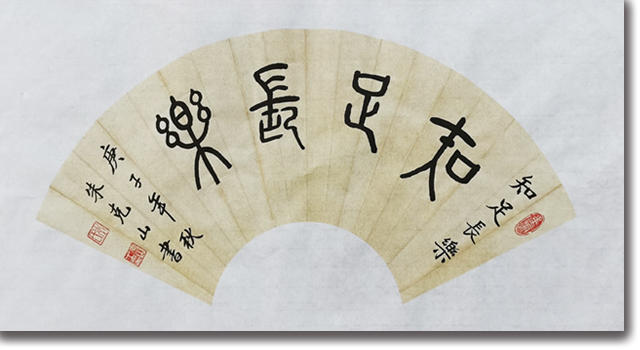 知足長樂
知足長樂
庚子年秋
朱克山書